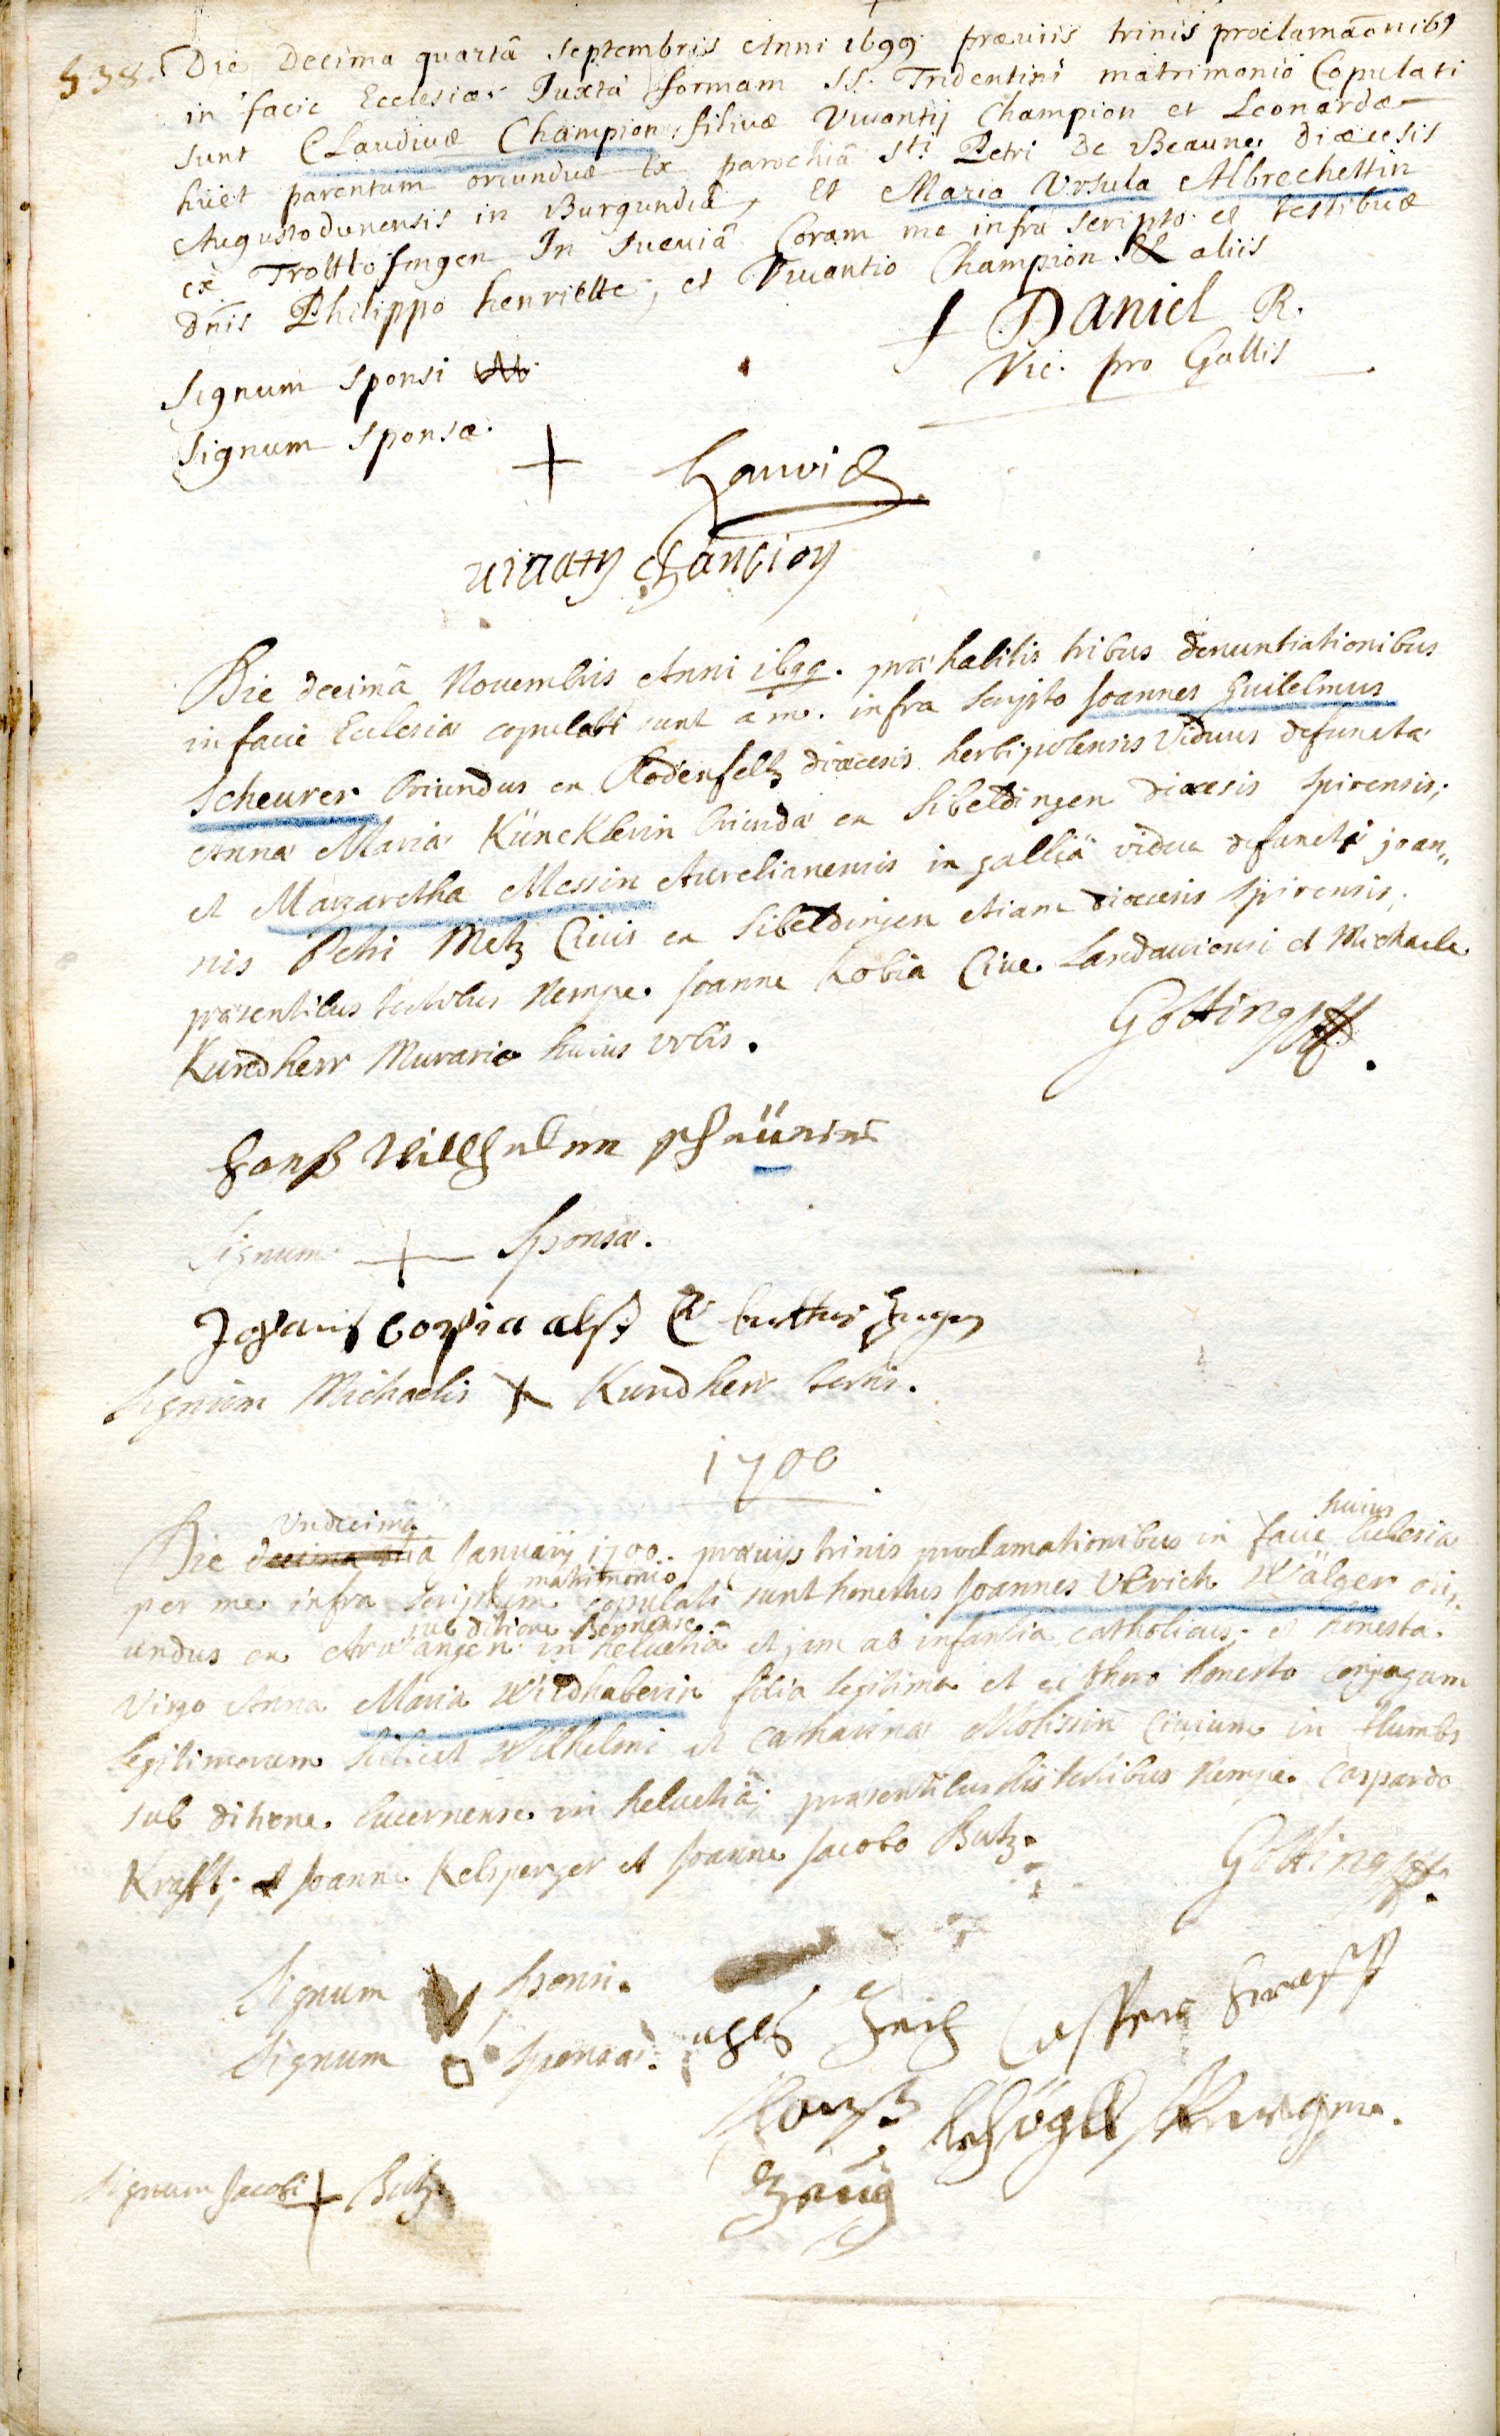 538. Die Decima quartâ Septembris Anni 1699 praeviis trinis proclamaōnibꝰ
in facie Ecclesiae Juxta formam SS. Tridentini matrimonio Copulati
sunt Claudius Champion filius Vivantij Champion et Leonardae
huët parentum oriundus ex parochiâ Sti. Petri de Beaune dioecesis
Augustodunensis in Burgundiâ, et Maria Vrsula Albrechettin
ex Troltlofingen In Sueuiâ Coram me infra scripto et testibus
dn̄is Philippo henriette, et Viuantio Champion & aliis
Daniel R.
Vic. pro Gallis
Signum Sponsi
Signum Sponsae.
Die decimâ Nouembris Anni 1699. prae habitis tribus denuntiationibus
in facie Ecclesiae copulati sunt a me infra scripto Joannes Guilelmus
Scheurer Oriundus ex Rodenfeltz dioecesis herbipolensis Viduus defunctae
Annae Mariae Küncklerin Oriundae ex Sibeldingen dioecesis Spirensis;
et Margaretha Messin Aurelianensis in galliâ vidua defuncti joan„
nis Petri Metz Ciuis ex Sibeldingen etiam dioecesis Spirensis,
praesentibus testibus Nempe Joanne Kobia Ciue Landauiensi et Michaele
Kundherr Murario huius vrbis.
Gotting
Hanß Willhelm
Signum + Sponsae.
Signum Michaelis + Kundherr testis.
1700
Vndecimâ
huius
Die January 1700. praevijs trinis proclamationibus in facie Ecclesiae
matrimonio
per me infra scriptum copulati sunt honestus Joannes Vlrich Wälger ori„
sub ditione Bernense
undus ex Arwangen in helvetiâ et jam ab infantia catholicus; et honesta
Virgo Anna Maria Wildhaberin filia legitima et ex thoro honesto conjugum
legitimorum scilicet Wilhelmi et Catharinae Molissin Ciuium in
sub ditione Lucernense in helvetiâ; praesentibus his testibus Nempe Casparo
Krafft; et Joanne Kelsperger et Joanne Jacobo Butz.
Gotting
Signum Sponsi.
Signum Sponsae.
Signum Jacobi + Butz